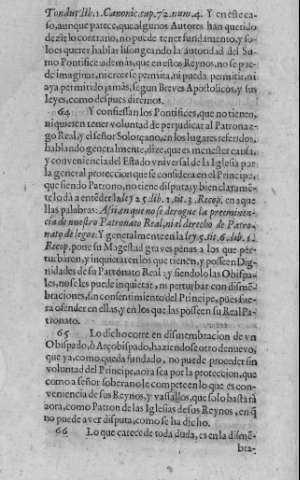 Tondut lib. 1. Canonic. cap. 72. num. 4. Y en este ca-
so, aunque parece, que algunos Autores han querido
dezir lo contrario, no puede tener fundamento, y so-
lo es querer hablar lisongeando la autoridad del Su-
mo Pontifice: ademàs, que en estos Reynos, no se pue-
de imaginar, ni cree se permita, ni pueda permitir, ni
aya permitido jamàs, segun Breves Apostolicos, y sus
leyes, como despues diremos.
64 Y confiessan los Pontifices, que no tienen,
ni quieren tener voluntad de perjudicar al Patronaz-
go Real, y el señor Solorçano, en los lugares referidos,
hablando generalmente, dize, que es menester causa,
y conveniencia del Estado vniversal de la Iglesia; por
la general proteccion que se considera en el Principe,
que siendo Patrono, no tiene disputa, y bien clara mẽ-
te lo dà à entender la ley 25. lib. 1. tit. 3. Recop. en aque
llas palabras: Assi en que no se derogue la preeminẽn-
cia de nuestro Patronato Real, ni el derecho de Patro-
nato de legos: Y generalmente en la ley 5. tit. 6. lib. 1.
Recop. pone su Magestad graves penas à los que per-
turbàron, y inquietàren los que tienen, y posseen Dig-
nidades de su Patronato Real; y siendolo las Obispa-
les, no se les puede inquietar, ni perturbar con disme-
braciones, sin consentimiento del Principe, pues fue-
ra ofender en ellas, y en los que las posseen su Real Pa-
tronato.
65 Lo dicho corre en dismembracion de vn
Obispado, ò Arçobispado, haziendose otro de nuevo,
que ya, como queda fundado, no puede proceder sin
voluntad del Principe, aora sea por la proteccion, que
como a señor soberano le compete en lo que es con-
veniencia de sus Reynos, y vassallos, que solo bastarà
aora, como Patron de las Iglesias de sus Reynos, en q̃
no puede aver disputa, como se ha dicho.
66 Lo que carece de toda duda, es en la dismẽ-
bra-